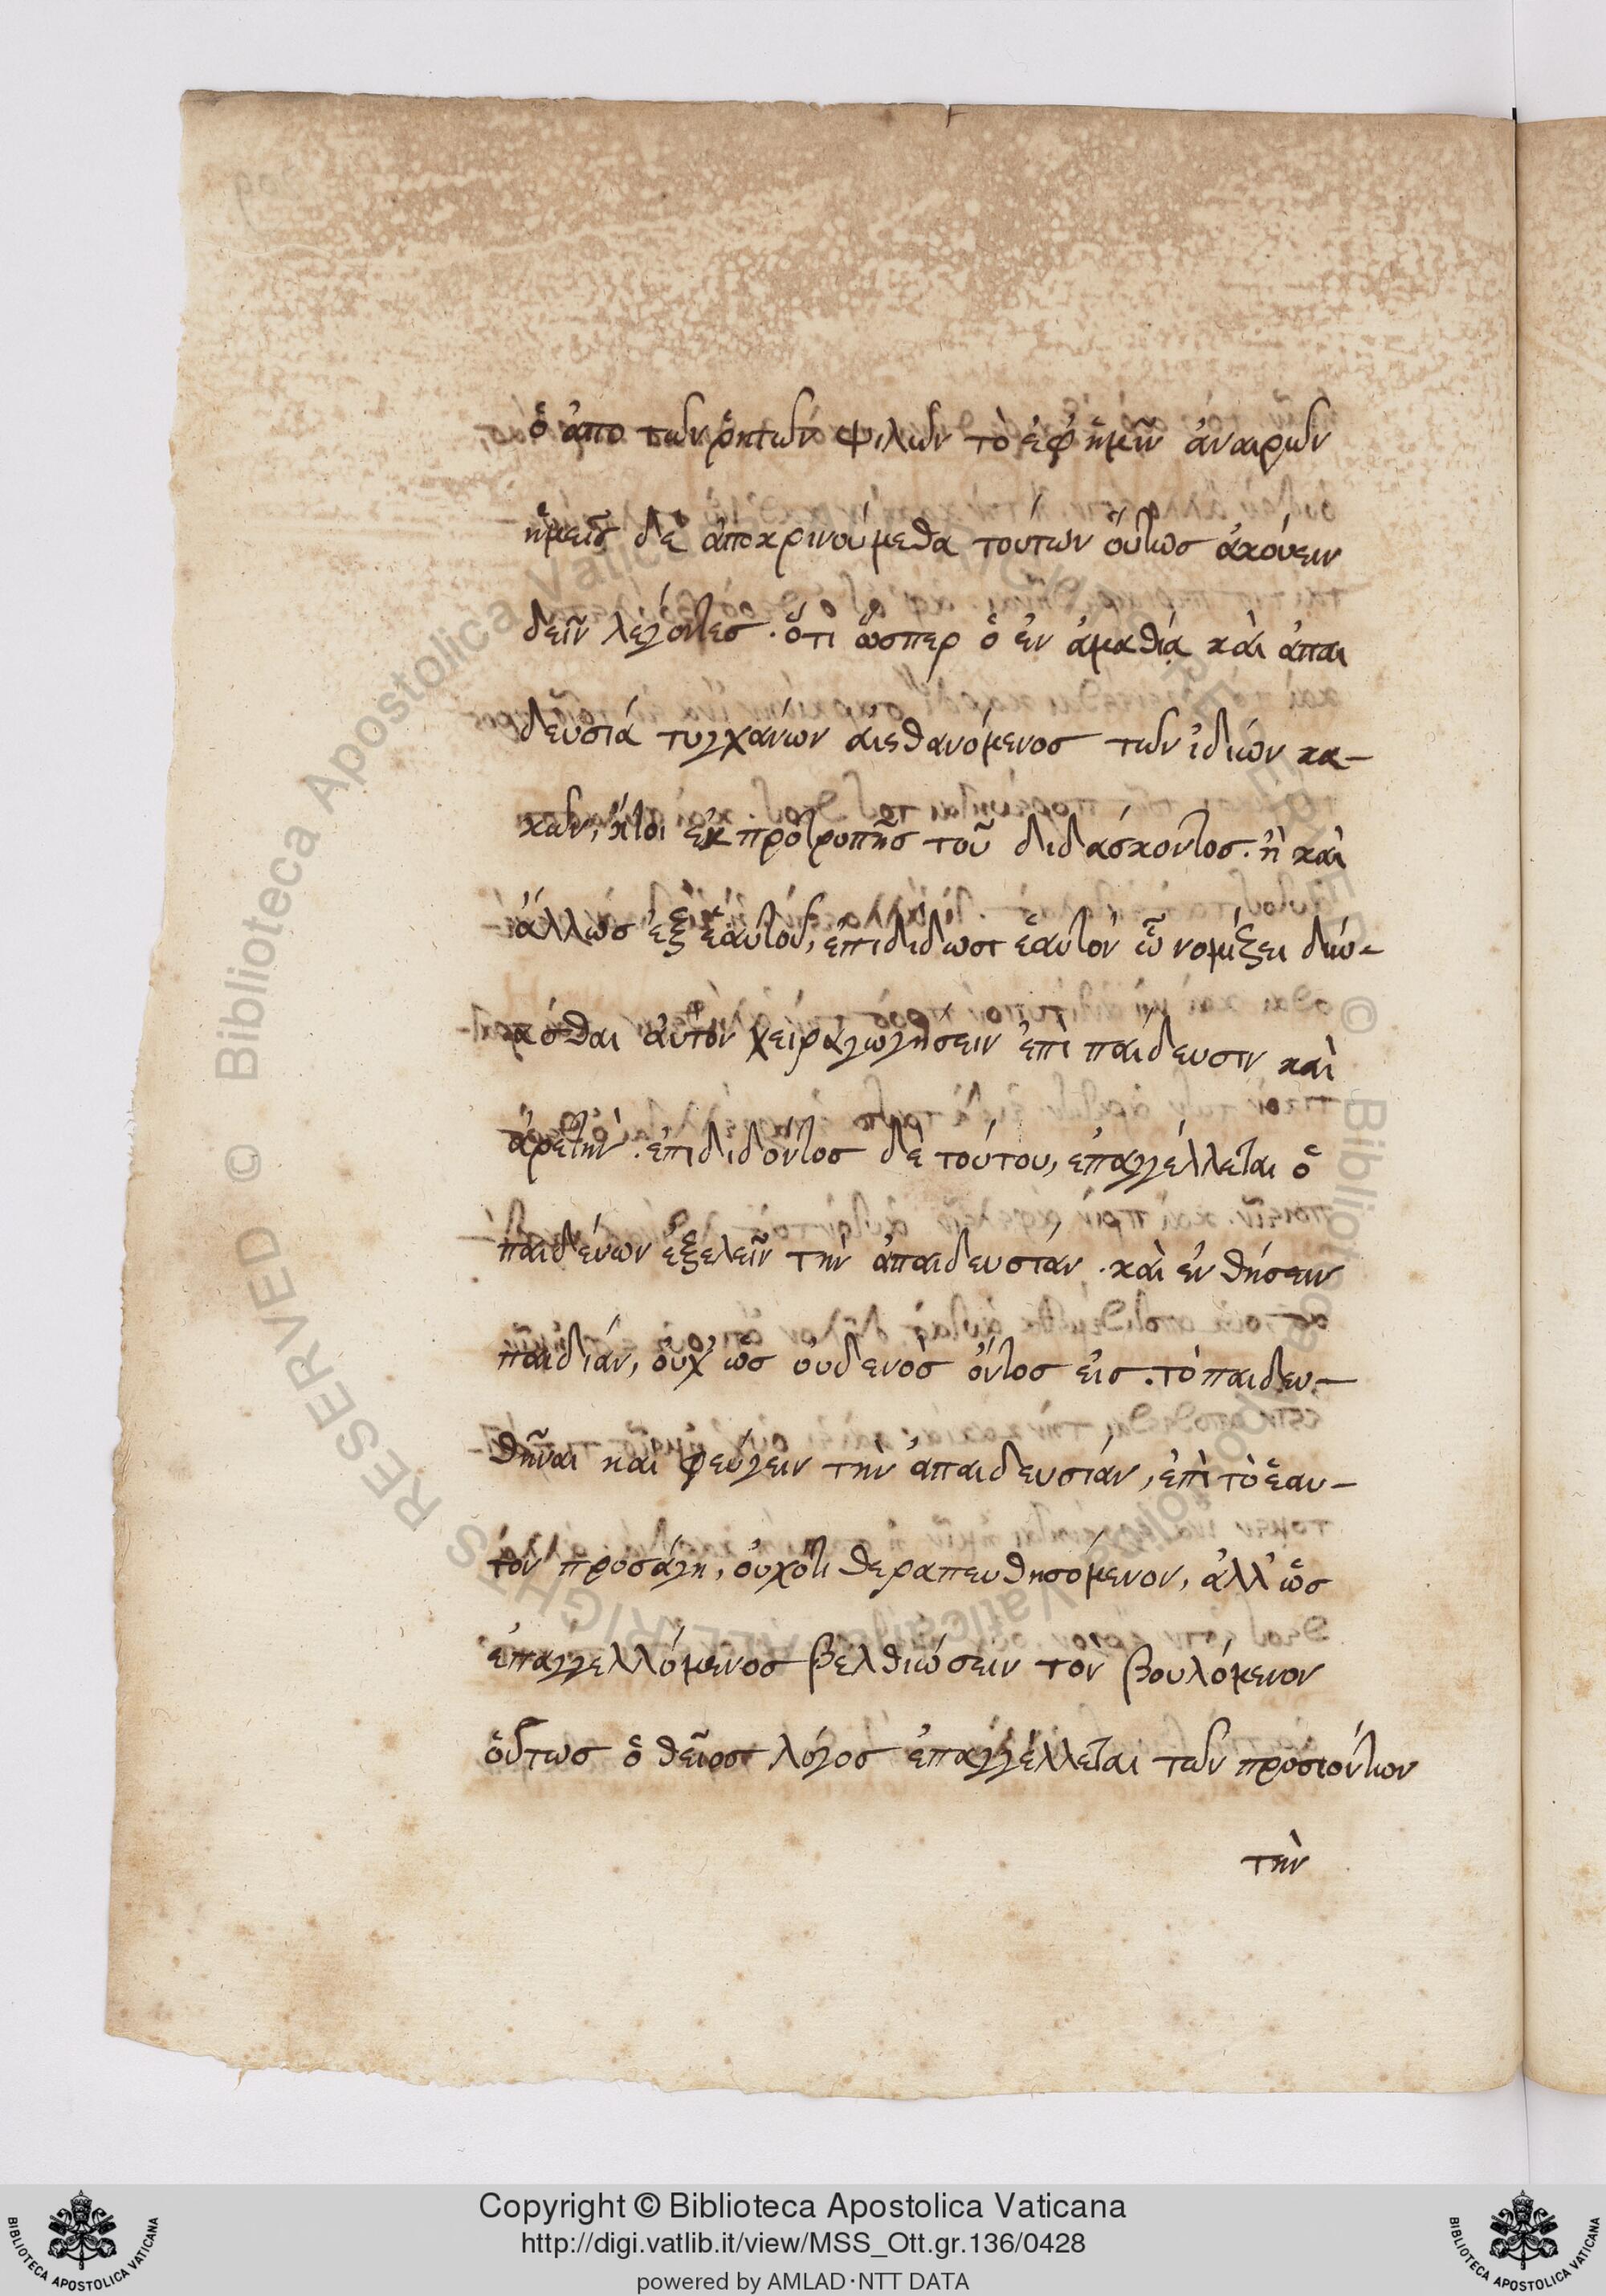 ὁ ἀπο τῶν ῥητῶν ψιλῶν τὸ ἐφ' ἡμῖν ἀναιρῶν
ἡμεῖς δὲ ἀποκρινούμεθα τούτων οὕτως ἀκούειν
δεῖν λέγοντες. ὅτι ὥσπερ ὁ ἐν ἀμαθία καὶ ἀπαι
δευσία τυγχάνων αἰσθανόμενος τῶν ἰδίων κα-
κῶν, ἤτοι ἐκ προτροπῆς τοῦ διδάσκοντος. ἢ καὶ
ἄλλως ἐξ ἑαυτοῦ, ἐπιδίδωσι ἑαυτὸν ᾧ νομίζει δύ-
ασθαι αὐτὸν χειραγωγήσειν ἐπὶ παίδευσιν καὶ
ἀρετὴν. ἐπιδιδόντος δὲ τούτου, ἐπαγγέλλεται ὁ
παιδεύων ἐξελεῖν τὴν ἀπαιδευσίαν. καὶ ἐνθήσειν
παιδιάν, οὐχ ὡς οὐδενὸς ὄντος εἰς. τὸ παιδευ-
θῆναι καὶ φεύγειν τὴν ἀπαιδευσίαν, ἐπὶ τὸ ἑαυ-
τὸν προσάγη, οὐχότι θεραπευθησόμενον, ἀλλ' ὡς
ἐπαγγελλόμενος βελθιώσειν τὸν βουλόμενον
οὕτως ὁ θεῖος λόγος ἐπαγγέλλεται τῶν προσιόντων
τὴν
Copyright © Biblioteca Apostolica Vaticana
http://digi.vatlib.it/view/MSS_Ott.gr.136/0428
powered by AMLAD·NTT DATA
BIBLIOTECA APOSTOLICA VATICANA
BIBLIOTECA APOSTOLICA VATICANA